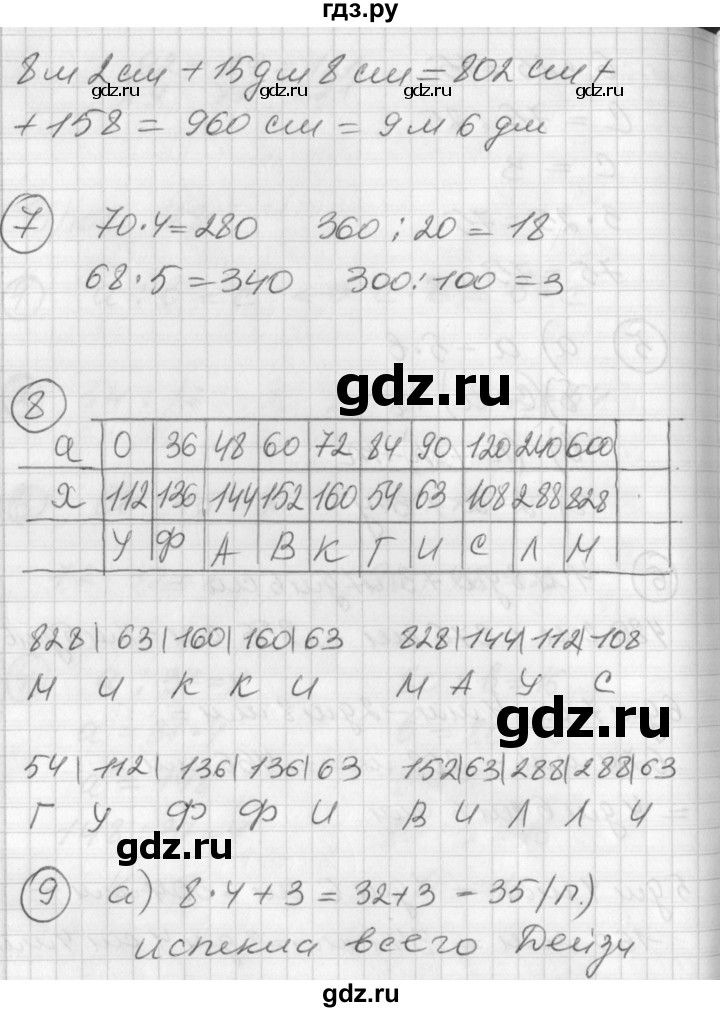 гдз.ру
8 м 2 см + 15 дм 8 см = 802 см +
+ 158 = 960 см = 9 м 6 дм
7 70·4=280 360:20=18
68·5=340 300:100=3
gdz.ru
8
а 0 36 48 60 72 84 90 120 240 600
х 112 136 144 152 160 54 63 108 288 828
У Ф А В К Г И С Л М
828| 63|160|160|63 828|144|112|108
М И К К И М А У С
gdz.ru
54|112|136|136|63 152|63|288|288|63
Г У Ф Ф И В И Л Л И
gdz.ru
9 а) 8·4+3=32+3=35(п.)
испекла всего Дейзи
gdz.ru